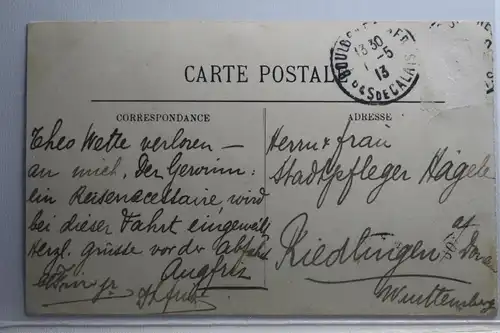 CARTE POSTALE
CORRESPONDANCE
Theo Wette verloren —
an mich, Der Gewinn:
ein Reisenecessaire, wird
bei dieser Fahrt eingeweiht
Herzl. grüsse vor der Abfahrt
jr.
ADRESSE
Herrn & frau
Stadtpfleger Hägele
Riedlingen a/
Württemberg
13 30
1 -5
13
PAS DE CALAIS